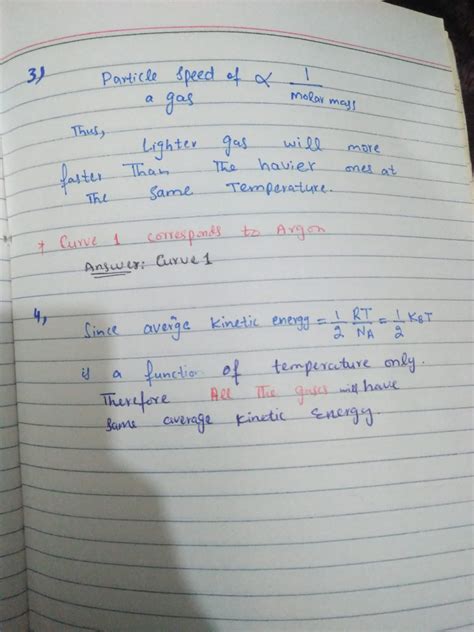 3) Particle speed of ∝ 1/molar mass
a gas
Thus,
Lighter gas will more
faster Than The havier ones at
The same Temperature.
* Curve 1 corresponds to Argon
Answer: Curve 1
4, Since averge kinetic energy = 1/2 RT/NA = 1/2 KBT
is a function of temperature only.
Therefore All The gases will have
same average kinetic Energy.